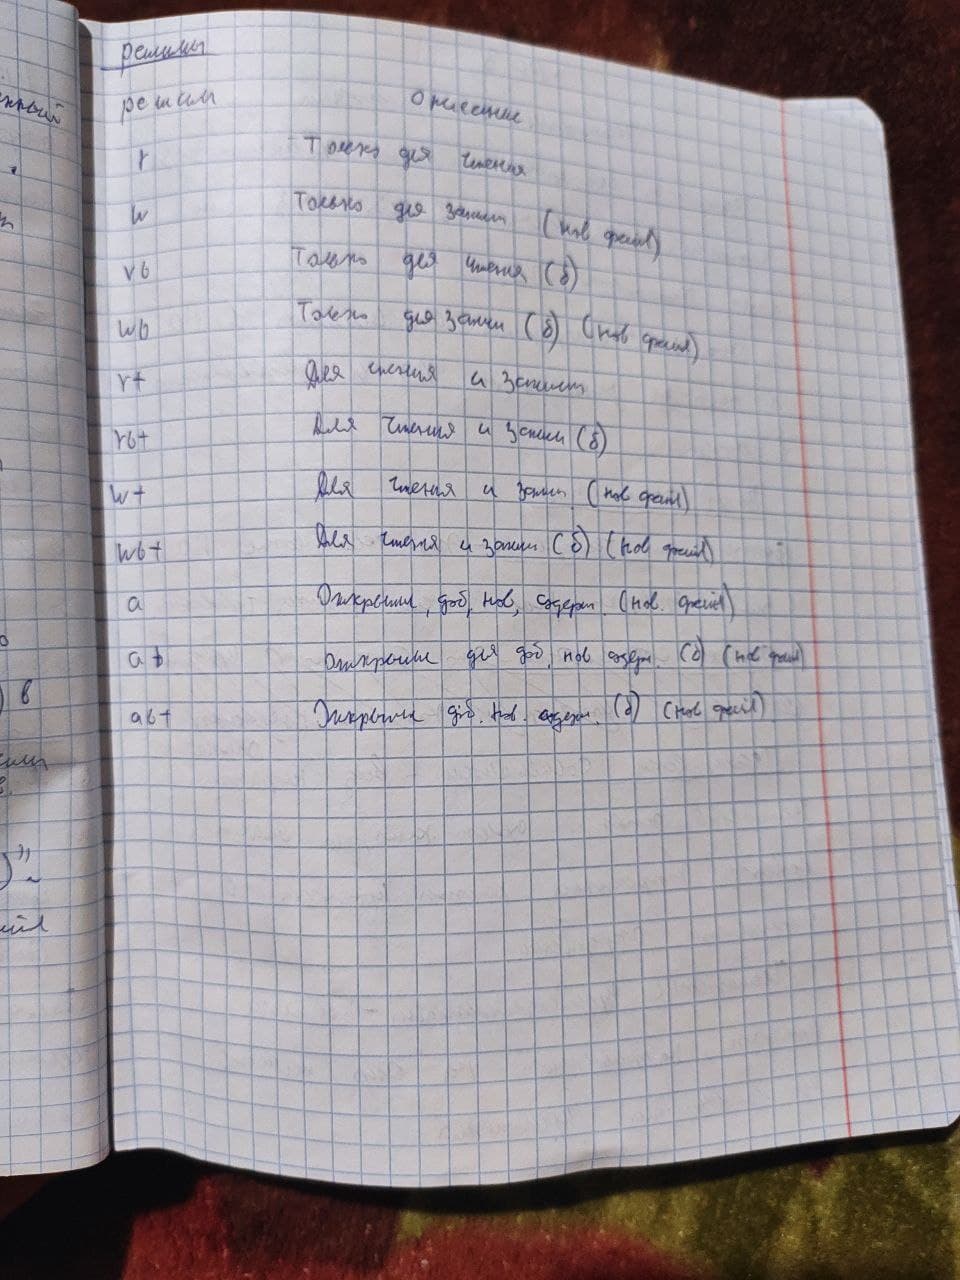 режимы
режим описание
r Только для чтения
w Только для записи (нов файл)
rb Только для чтения (б)
wb Только для записи (б) (нов файл)
r+ Для чтения и записи
rb+ Для чтения и записи (б)
w+ Для чтения и записи (нов файл)
wb+ Для чтения и записи (б) (нов файл)
a Открытие, доб, нов, содерж. (нов. файл)
ab открытие для доб. нов содерж. (б) (нов файл)
ab+ Открытие доб. нов. содерж. (б) (нов файл)